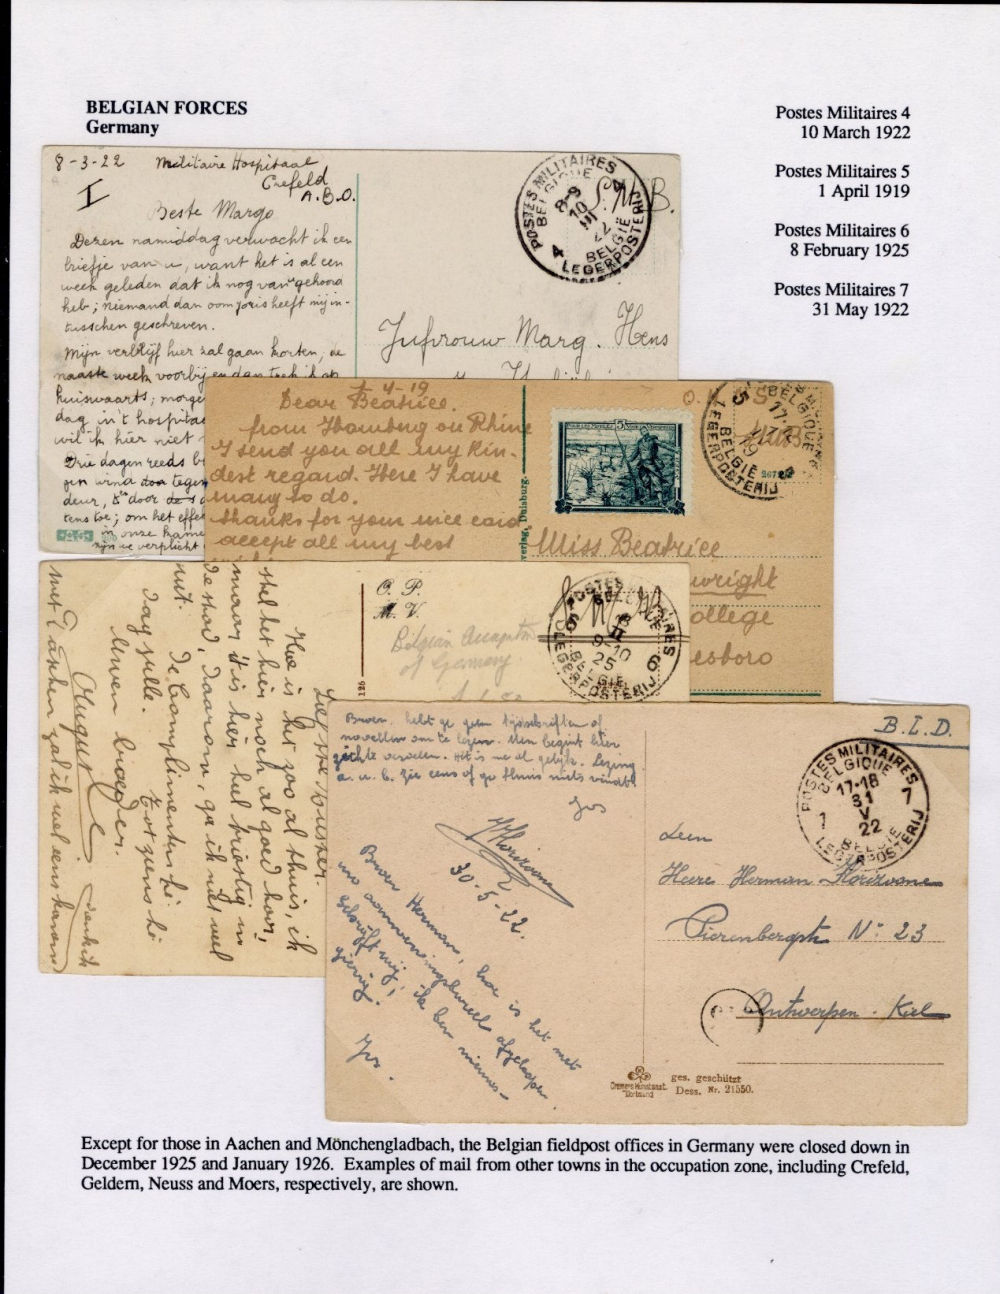 BELGIAN FORCES
Germany
Postes Militaires 4
10 March 1922
Postes Militaires 5
1 April 1919
Postes Militaires 6
8 February 1925
Postes Militaires 7
31 May 1922
8-3-22 Militaire Hospitaal
Crefeld
A.B.O.
I
Beste Margo
Dezen namiddag verwacht ik een
briefje van u, want het is al een
week geleden dat ik nog van u gehoord
heb; niemand dan oom joris heeft mij in-
tusschen geschreven.
Mijn verblijf hier zal gaan korten, de
naaste week voorbij en dan trek ik op
huiswaarts; morge
dag in't hospita
wil ik hier niet
Drie dagen reeds b
en wind door tegen
deur, door
tens toe; om het effe
in onze kame
zijn we verplicht
S.M.B.
POSTES MILITAIRES
BELGIQUE
8-9
10
III
22
BELGIË
LEGERPOSTERIJ
4
Jufvrouw Marg. Hens
1-4-19
Dear Beatrice.
from Homberg on Rhine
I send you all my kin-
dest regard. Here I have
many to do.
thanks for your nice card
accept all my best
verlag, Duisburg.
5
BELGIQUE
5
17
19
BELGIË
LEGERPOSTERIJ
Miss Beatrice
wright
ollege
esboro
O. P.
M. V.
Belgian Occupation
of Germany
126
POSTES MILITAIRES
BELGIQUE
6
8
II
9-10
25
BELGIË
LEGERPOSTERIJ
6
Liefste Zuster.
Hoe is het zoo al thuis, ik
stel het hier noch al goed hoor,
maar it is hier heel triestig in
de stad, daarom, ga ik niet veel
uit.
De Complimenten
Tot ziens
dag julle.
Uwen broeder.
August
B.L.D.
POSTES MILITAIRES
BELGIQUE
17-18
31
V
22
7
BELGIË
LEGERPOSTERIJ
Broer. hebt ge geen tijdschriften of
novellen om te lezen. Men begint hier
ziekte
a. u. b. zie eens of ge thuis niets vindt.
Jos
30-5-22.
Broer Herman, hoe is het met
uw aanwervingsbureel afgeloopen
schrijft mij, ik ben nieuws-
gierig.
Jos.
Heere Herman
Pierenbergstr Nº 23
Antwerpen - Kiel
Cramers Kunstanst.
Dortmund
ges. geschützt
Dess. Nr. 21550.
Except for those in Aachen and Mönchengladbach, the Belgian fieldpost offices in Germany were closed down in
December 1925 and January 1926. Examples of mail from other towns in the occupation zone, including Crefeld,
Geldern, Neuss and Moers, respectively, are shown.